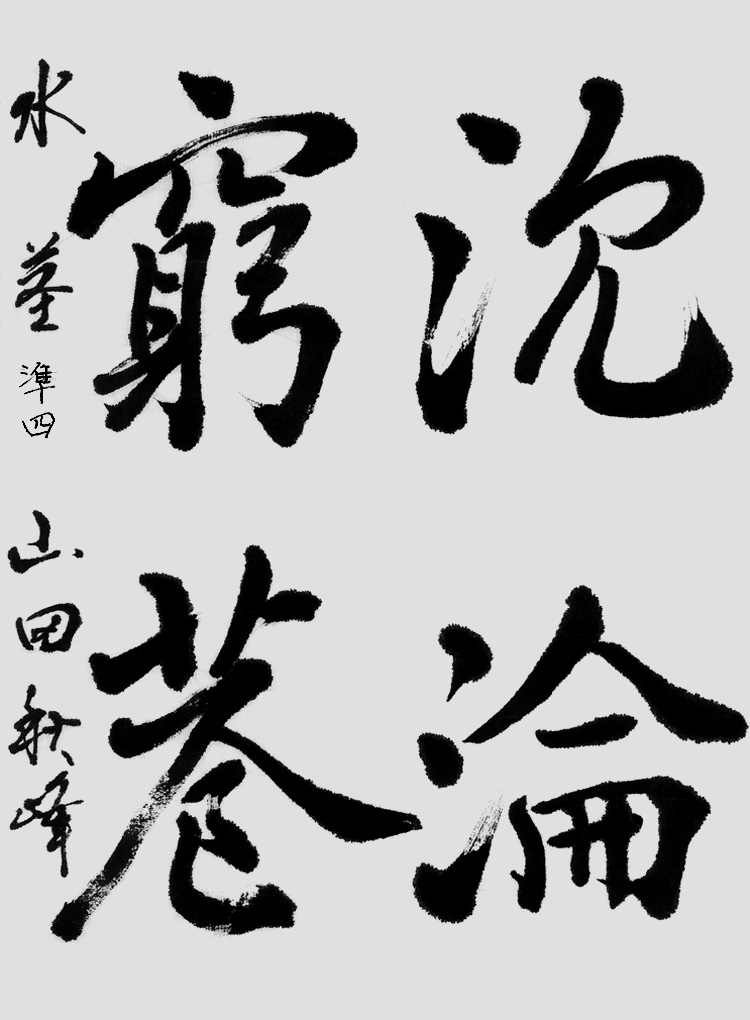 沈淪
窮巷
水茎 準四 山田秋峰